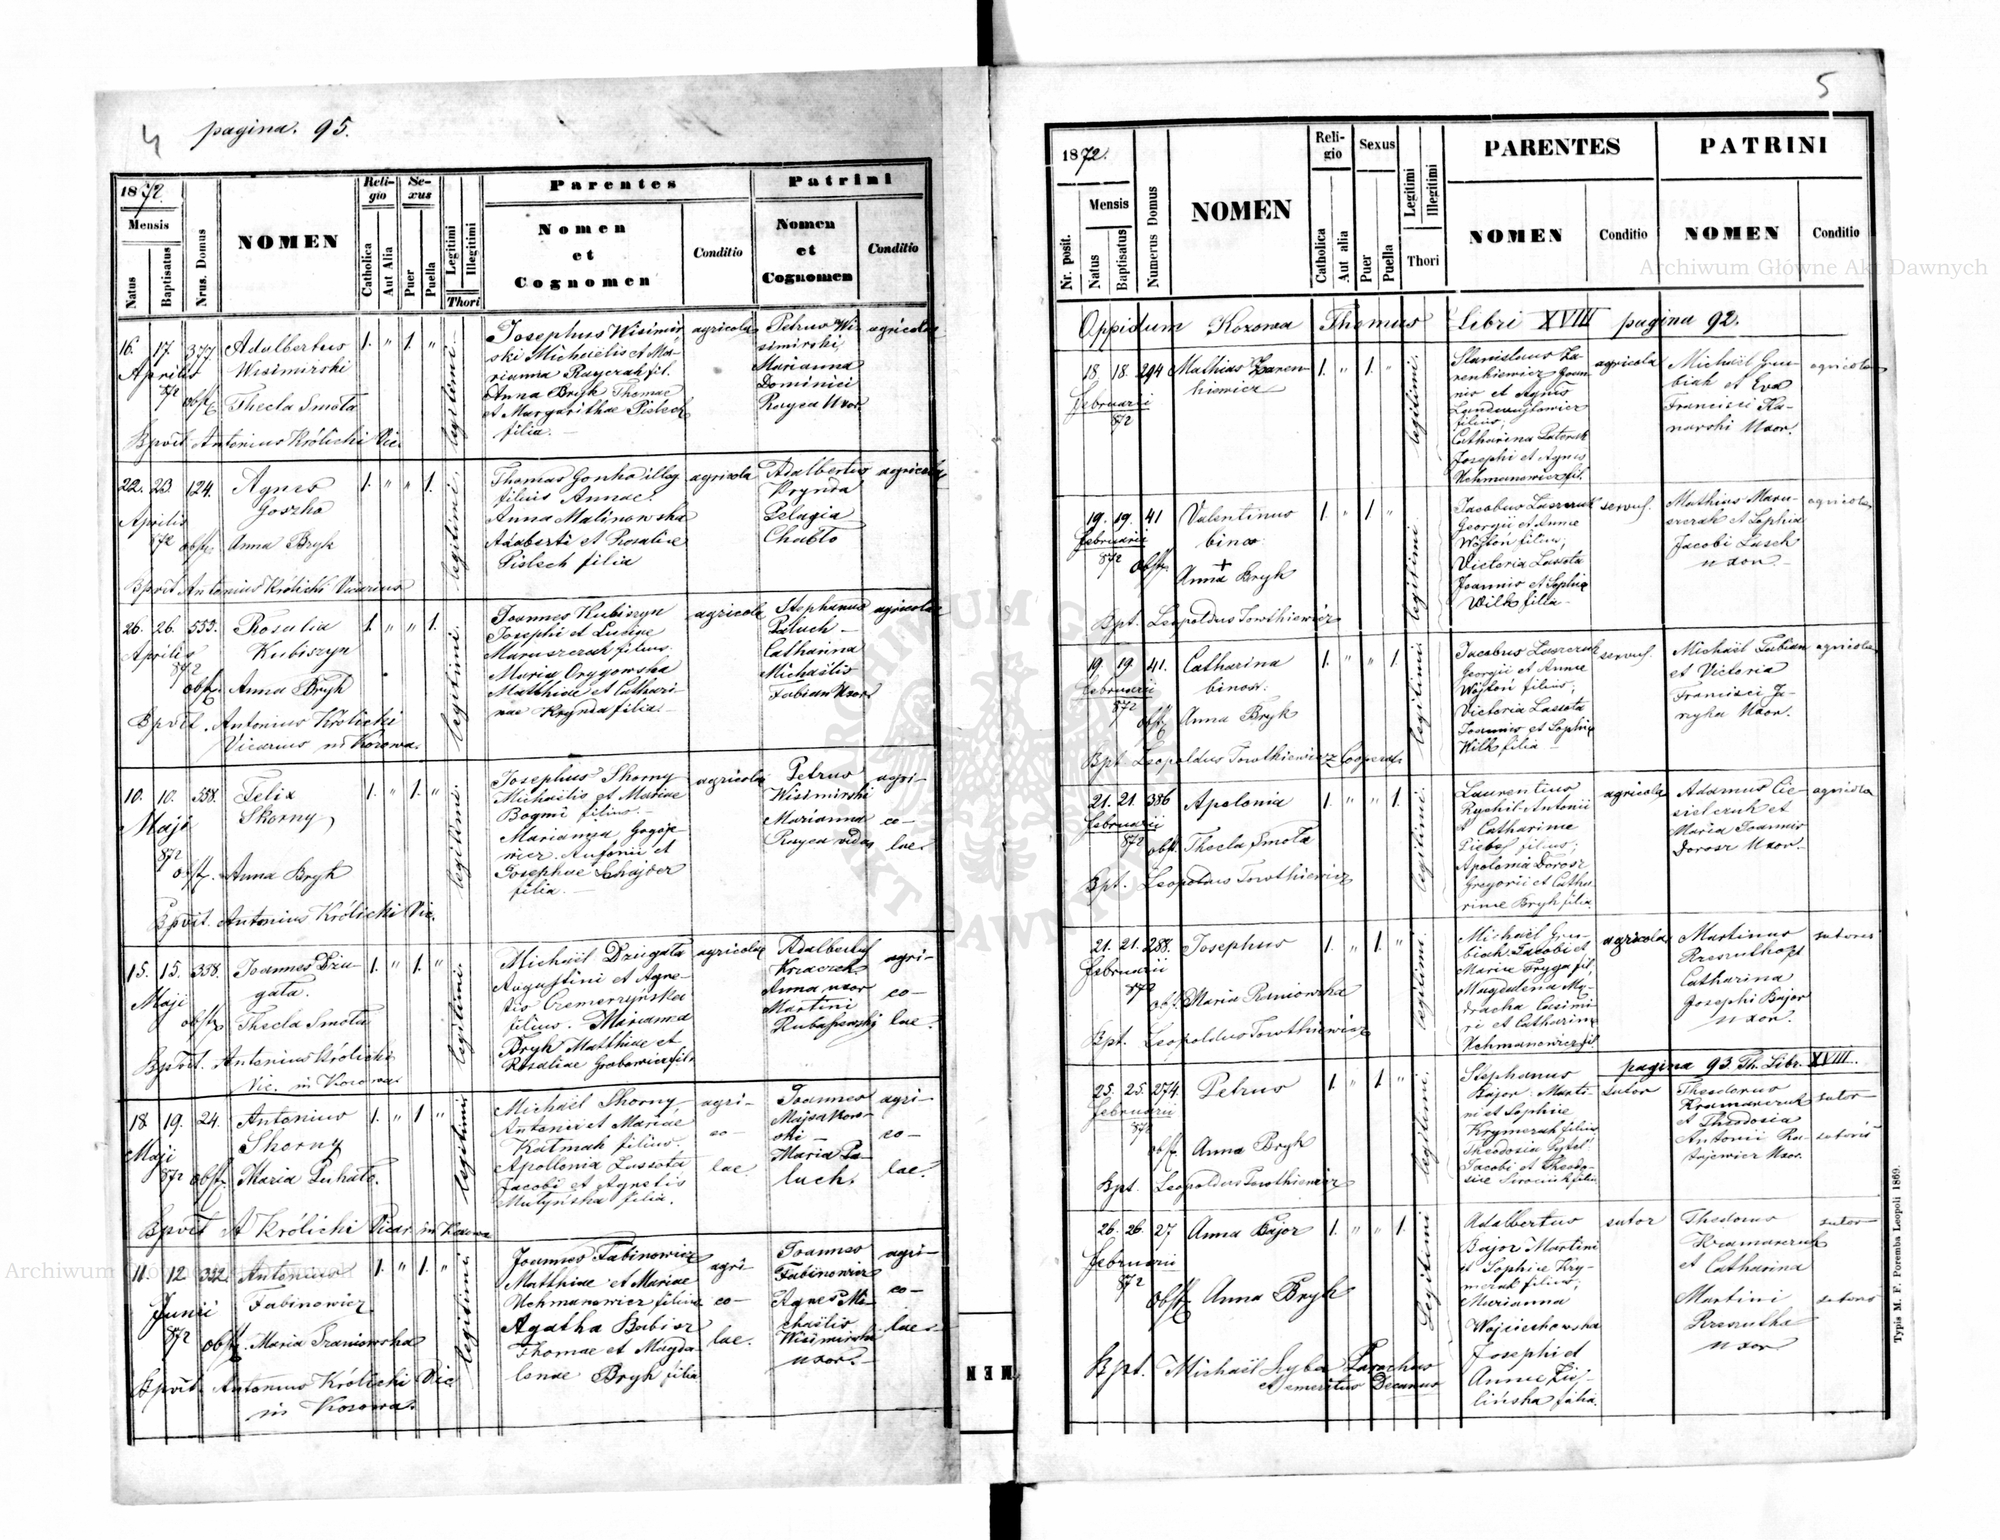 4 pagina. 95.
1872.
Mensis
Natus
Baptisatus
Nrus. Domus
NOMEN
Religio
Catholica
Aut Alia
Sexus
Puer
Puella
Legitimi
Illegitimi
Thori
Parentes
Nomen
et
Cognomen
Conditio
Patrini
Nomen
et
Cognomen
Conditio
16. 17. 377 Adalbertus 1. " 1. "
Aprilis Wisimirski
872 obst. Thecla Smota
Bpvit. Antonius Królicki Vic.
legitimi.
Josephus Wisimir-
ski Michaelis et Ma-
rianna Raycrah fil.
Anna Bryk Thomae
et Margarithae Pislech
filia.
agricola
Petrus Wi-
simirski
Marianna
Dominici
Rayca Uxor
agricola
22. 23. 124. Agnes 1. " " 1.
Aprilis Goszko
872 obst. Anna Bryk
Bpvit Antonius Królicki Vicarius
legitimi.
Thomas Gonho illeg
filius Annae.
Anna Malinowska
Adalberti et Rosaliae
Pislech filia
agricola
Adalbertus
Prynda
Pelagia
Chabto
agricola
26. 26. 553. Rosalia 1. " " 1.
Aprilis Kubiszyn
872 obst. Anna Bryk
Bpvit. Antonius Królicki
Vicarius in Kozowa.
legitimi.
Joannes Kubiszyn
Josephi et Luciae
Maruszczak filius.
Maria Orygowska
Matthiae et Cathari-
nae Krynda filia.
agricola
Stephanus
Paluch
Catharina
Michaëlis
Fabian Uxor
agricola
10. 10. 558. Felix 1. " 1. "
Maji Skorny
872 obst. Anna Bryk
Bpvit. Antonius Królicki Vic.
legitimi.
Josephus Skorny
Michaëlis et Mariae
Bogmi filius.
Marianna Gogoje-
wicz. Antonii et
Josephae Schajder
filia.
agricola
Petrus
Wisimirski
Marianna
Rayca vidua
agri-
co-
lae.
15. 15. 338. Joannes Dziu- 1. " 1. "
Maji gata.
obst. Thecla Smota
Bpvit. Antonius Królicki
Vic. in Kozowa.
legitimi.
Michaël Dziugata
Augustini et Agne-
tis Czemerzyńska
filius. Marianna
Bryk Matthiae et
Rosaliae Grabowicz filia
agricolae
Adalbertus
Krzaczek
Anna uxor
Martini
agri-
co-
lae.
18. 19. 24. Antonius 1. " 1 "
Maji Skorny
872 obst. Maria Puhate.
Bpvit A Królicki Vicar. in Kozowa
legitimi
Michaël Skorny
Antonii et Mariae
Katmak filius.
Apollonia Lassota
Jacobi et Agnetis
Mutyńska filia.
agri-
co-
lae
Joannes
Majsakow-
ski
Maria Pa-
luch.
agri-
co-
lae.
11. 12 332. Antonius 1. " 1. "
Junii Fabinowicz
872 obst. Maria Szaniowska
Bpvit. Antonius Królicki Vic
in Kozowa.
legitimi.
Joannes Fabinowicz
Matthiae et Mariae
Uchmanowicz filius
Agatha Babisz
Thomae et Magda-
lenae Bryk filia
agri-
co-
lae.
Joannes
Fabinowicz
Agnes Mi-
chaëlis
Wisimirski
uxor.
agri-
co-
lae.
5
1872.
Nr. posit.
Mensis
Natus
Baptisatus
Numerus Domus
NOMEN
Religio
Catholica
Aut alia
Sexus
Puer
Puella
Legitimi
Illegitimi
Thori
PARENTES
NOMEN
Conditio
PATRINI
NOMEN
Conditio
Oppidum Kozowa Thomus Libri XVIII pagina 92.
18 18. 294 Mathias Zaren- 1. " 1. "
Februarii kiewicz
872
legitimi.
Stanislaus Za-
renkiewicz Joan-
nis et Agnes
filius;
Catharina Paterak
Josephi et Agnes
Uchmanowicz fil.
agricola
Michaël Gru-
biak et Eva
Francisci Ka-
narski Uxor.
agricola
19. 19. 41 Valentinus 1. " 1 "
Februarii binos
872 obst. Anna Bryk
Bpt. Leopoldus Towthiewicz
legitimi.
Jacobus Laszczuk
Georgii et Annae
Wójtoń filius;
Victoria Lassota
Joannis et Sophia
Wilk filia
servus.
Mathias Maru-
szczak et Sophia
Jacobi Lasech
uxor
agricola
19. 19. 41. Catharina 1. " " 1.
Februarii binos.
872 obst. Anna Bryk
Bpt Leopoldus Towthiewicz Cooperat.
legitimi.
Jacobus Laszczuk
Georgii et Annae
Wójtoń filius;
Victoria Lassota
Joannis et Sophia
Wilk filia
servus.
Michaël Fabian
et Victoria
Francisci Ja-
nyka Uxor.
agricola
21. 21. 386 Apolonia 1. " " 1.
Februarii
872 obst. Thecla Smota
Bpt. Leopoldus Towthiewicz
legitimi.
Laurentius
Rychil Antonii
et Catharinae
filius;
Apolonia Dorosz
Gregorii et Catha-
rinae Bryk filia
agricola
Adamus Cie-
sielczuk et
Maria Joannis
Dorosz Uxor.
agricola
21. 21. 288. Josephus 1. " 1. "
Februarii
872 obst. Maria Raniowska
Bpt. Leopoldus Towthiewicz
legitimi.
Michaël Gru-
biak Jacobi et
Mariae Fryga fil,
Magdalena My-
dracha Casimi-
ri et Catharinae
Uchmanowicz fil.
agricola
Martinus
Catharina
Josephi Bajor
uxor.
sutoris
pagina 93. Th. Libr. XVIII.
25. 25. 274. Petrus 1. " 1 "
Februarii
872 obst. Anna Bryk
Bpt. Leopoldus Towthiewicz
legitimi.
Stephanus
Bajor Marti-
ni et Sophiae
Krymczak filius
Theodosia Pytel
Jacobi et Theodo-
siae Siroczuk filia
sutor
Theodorus
Kramarczuk
et Theodosia
Antonii Ra-
tajewicz Uxor.
sutor
sutoris
26. 26. 27 Anna Bajor 1. " " 1.
Februarii
872 obst. Anna Bryk
Bpt. Michaël Lyba Parochus
et emeritus Decanus
Legitimi
Adalbertus
Bajor Martini
et Sophiae Kry-
mczak filius;
Marianna
Wojciechowska
Josephi et
Annae Zie-
lińska filia.
sutor
Theodorus
Kramarczuk
et Catharina
Martini
uxor
sutor
sutoris
Typis M. F. Poremba Leopoli 1869.
Archiwum Główne Akt Dawnych
ARCHIWUM GŁÓWNE AKT DAWNYCH
Archiwum Główne Akt Dawnych